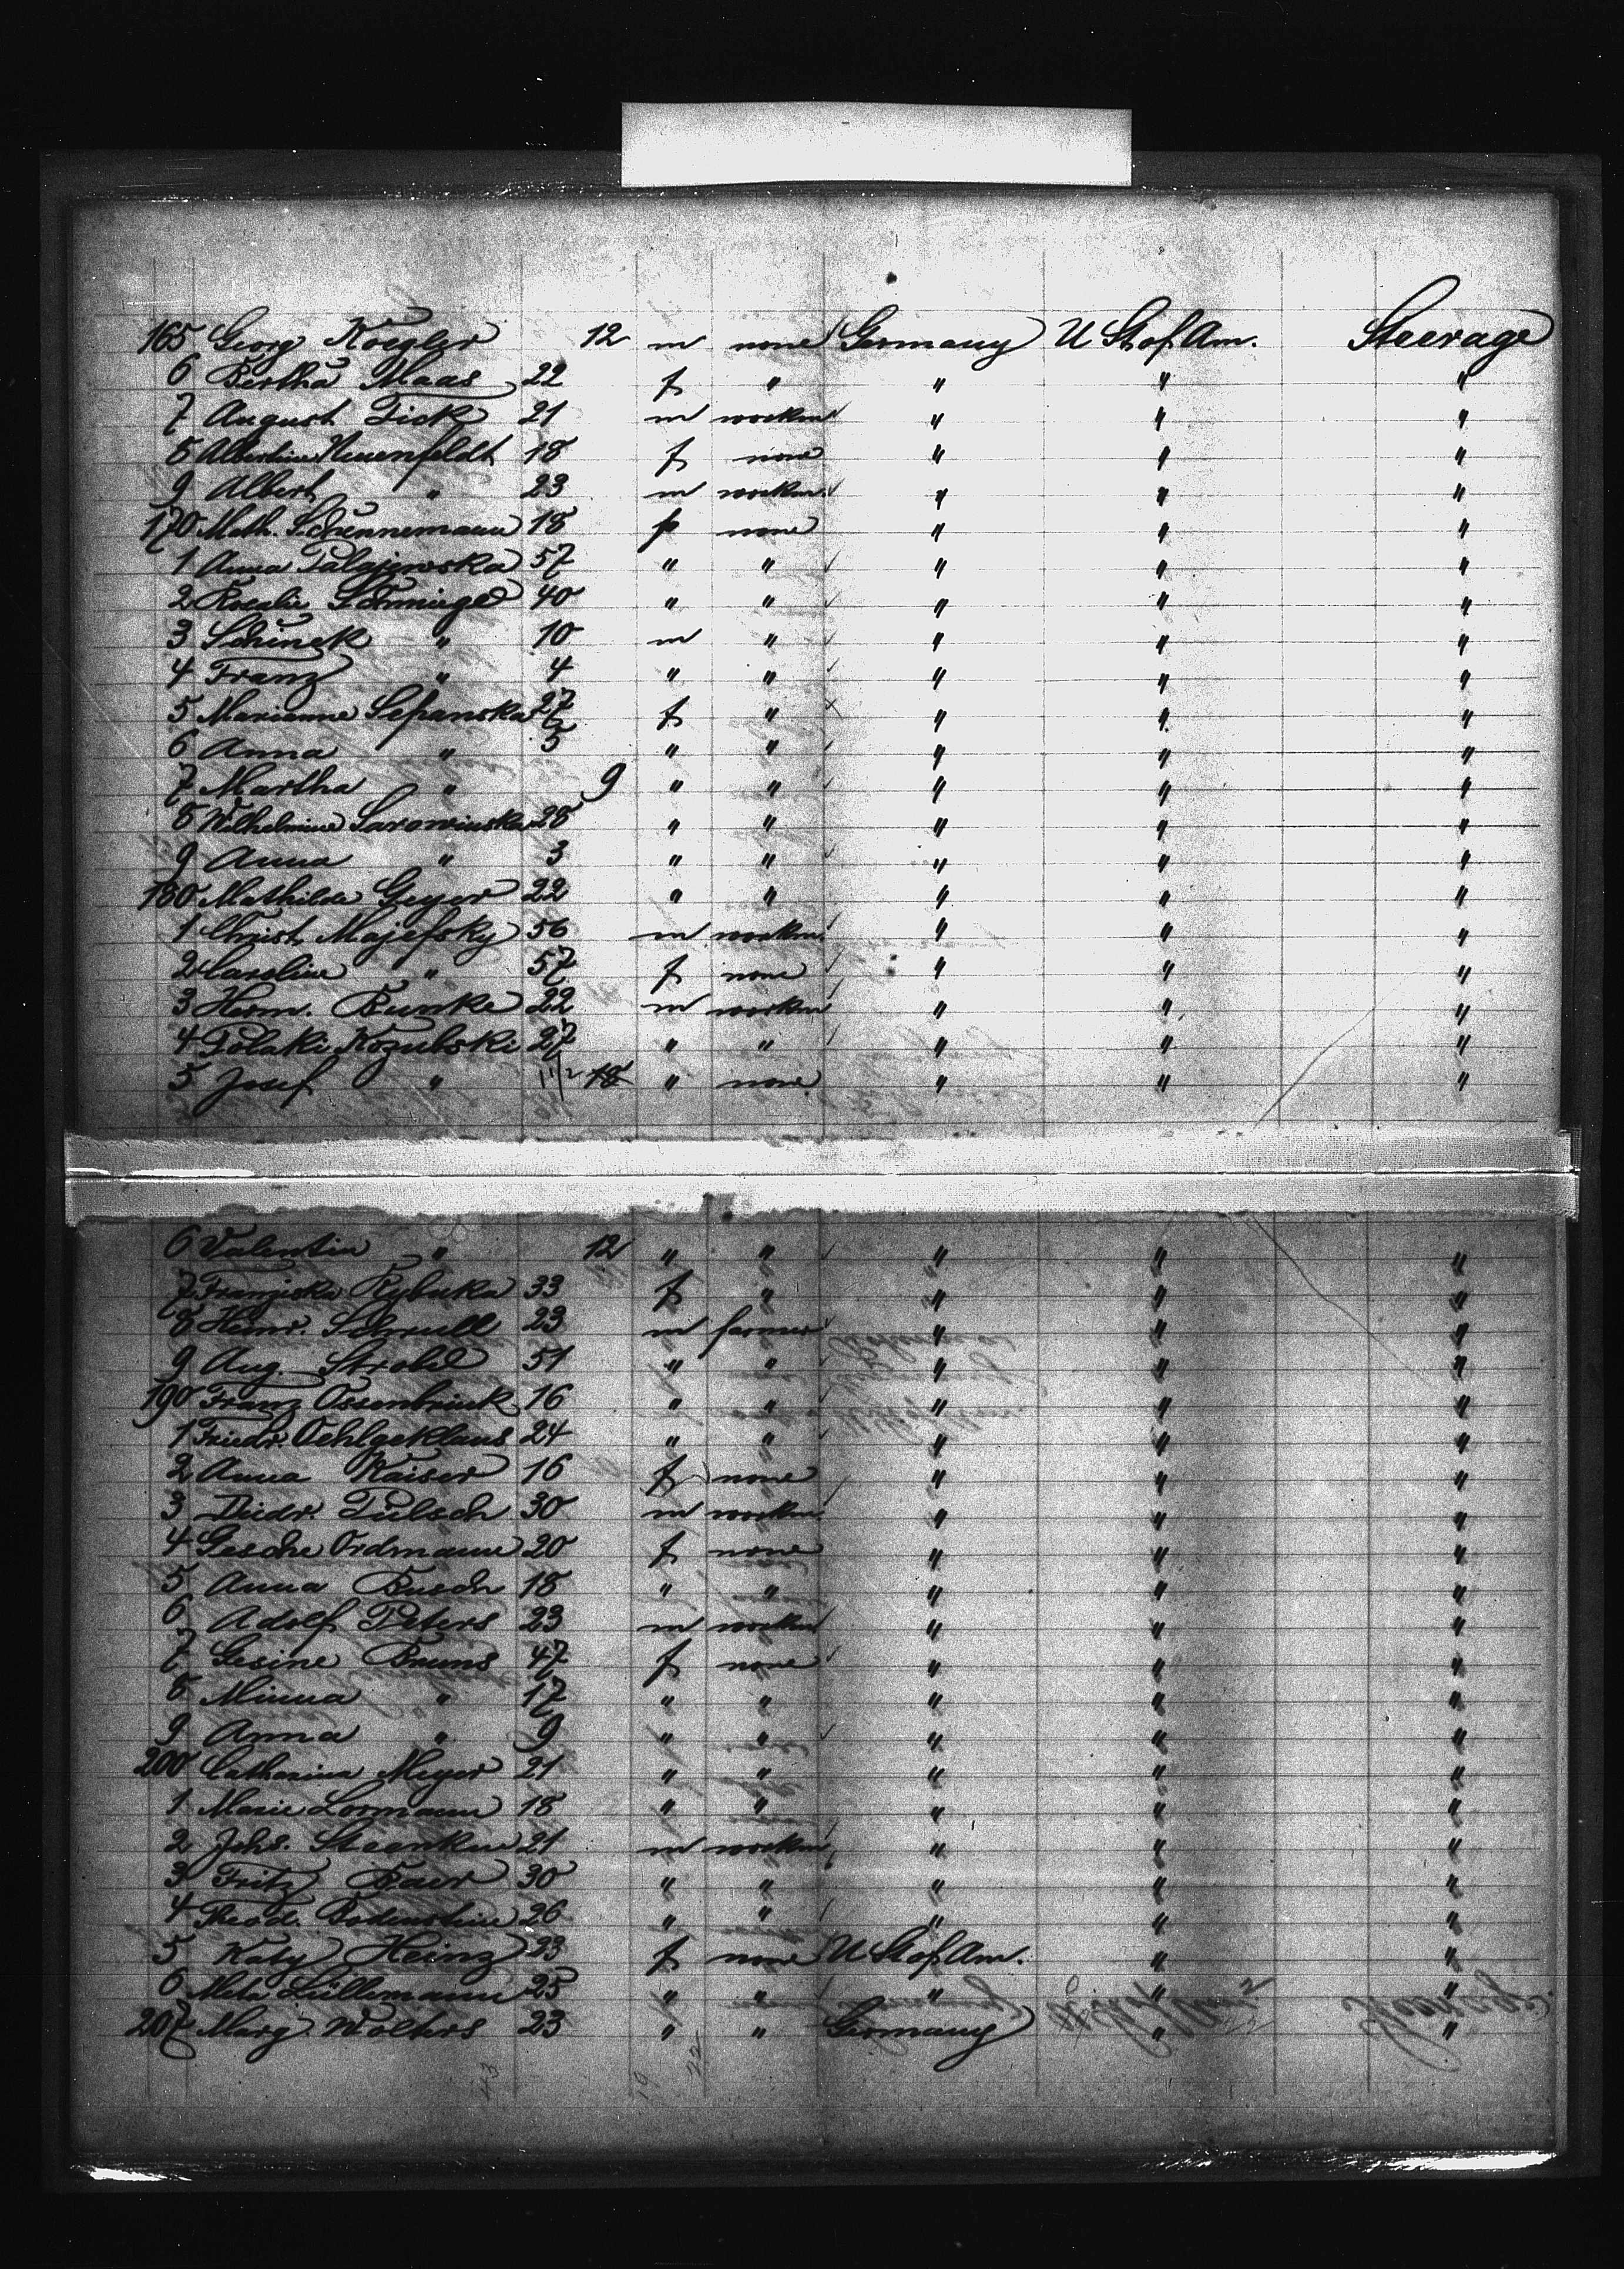 165 Georg Koegler 12 m none Germany U St of Am. Steerage
6 Bertha Maas 22 f " " " "
7 August Fick 21 m workm " " "
8 Albertine Neuenfeldt 18 f none " " "
9 Albert " 23 m workm. " " "
170 Math. Schünnemann 18 f none " " "
1 Anna Palajewska 57 " " " " "
2 Rosalie Schmiegel 40 " " " " "
3 Schinek " 10 m " " " "
4 Franz " 4 " " " " "
5 Marianne Sepanska 27 f " " " "
6 Anna " 5 " " " " "
7 Martha " 9 " " " " "
8 Wilhelmine Sarowinska 28 " " " " "
9 Anna " 3 " " " " "
180 Mathilde Geyer 22 " " " " "
1 Christ. Majefsky 56 m workm " " "
2 Caroline " 57 f none " " "
3 Herm. Bunke 22 m workm " " "
4 Polaki Kozubski 27 " " " " "
5 Josef " 11/2 18 " none " " "
6 Valentin " 12 " " " " "
7 Franziska Rybicka 33 f " " " "
8 Heinr. Schrull 23 m farmer " " "
9 Aug. Strobel 51 " " " " "
190 Franz Ossenbrink 16 " " " " "
1 Friedr. Oehlgeklaus 24 " " " " "
2 Anna Kaiser 16 f none " " "
3 Diedr. Pülsch 30 m workm " " "
4 Gesche Ordmann 20 f none " " "
5 Anna Busch 18 " " " " "
6 Adolf Peters 23 m workm " " "
7 Gesine Bruns 47 f none " " "
8 Minna " 17 " " " " "
9 Anna " 9 " " " " "
200 Catharina Meyer 21 " " " " "
1 Marie Lormann 18 " " " " "
2 Johs. Steenken 21 m workm " " "
3 Fritz Baer 30 " " " " "
4 Theod. Bodenstein 26 " " " " "
5 Katy Heinz 23 f none U St of Am. " "
6 Meta Lüllemann 25 " " " " "
207 Marg. Wolters 23 " " Germany " "
43 19 22